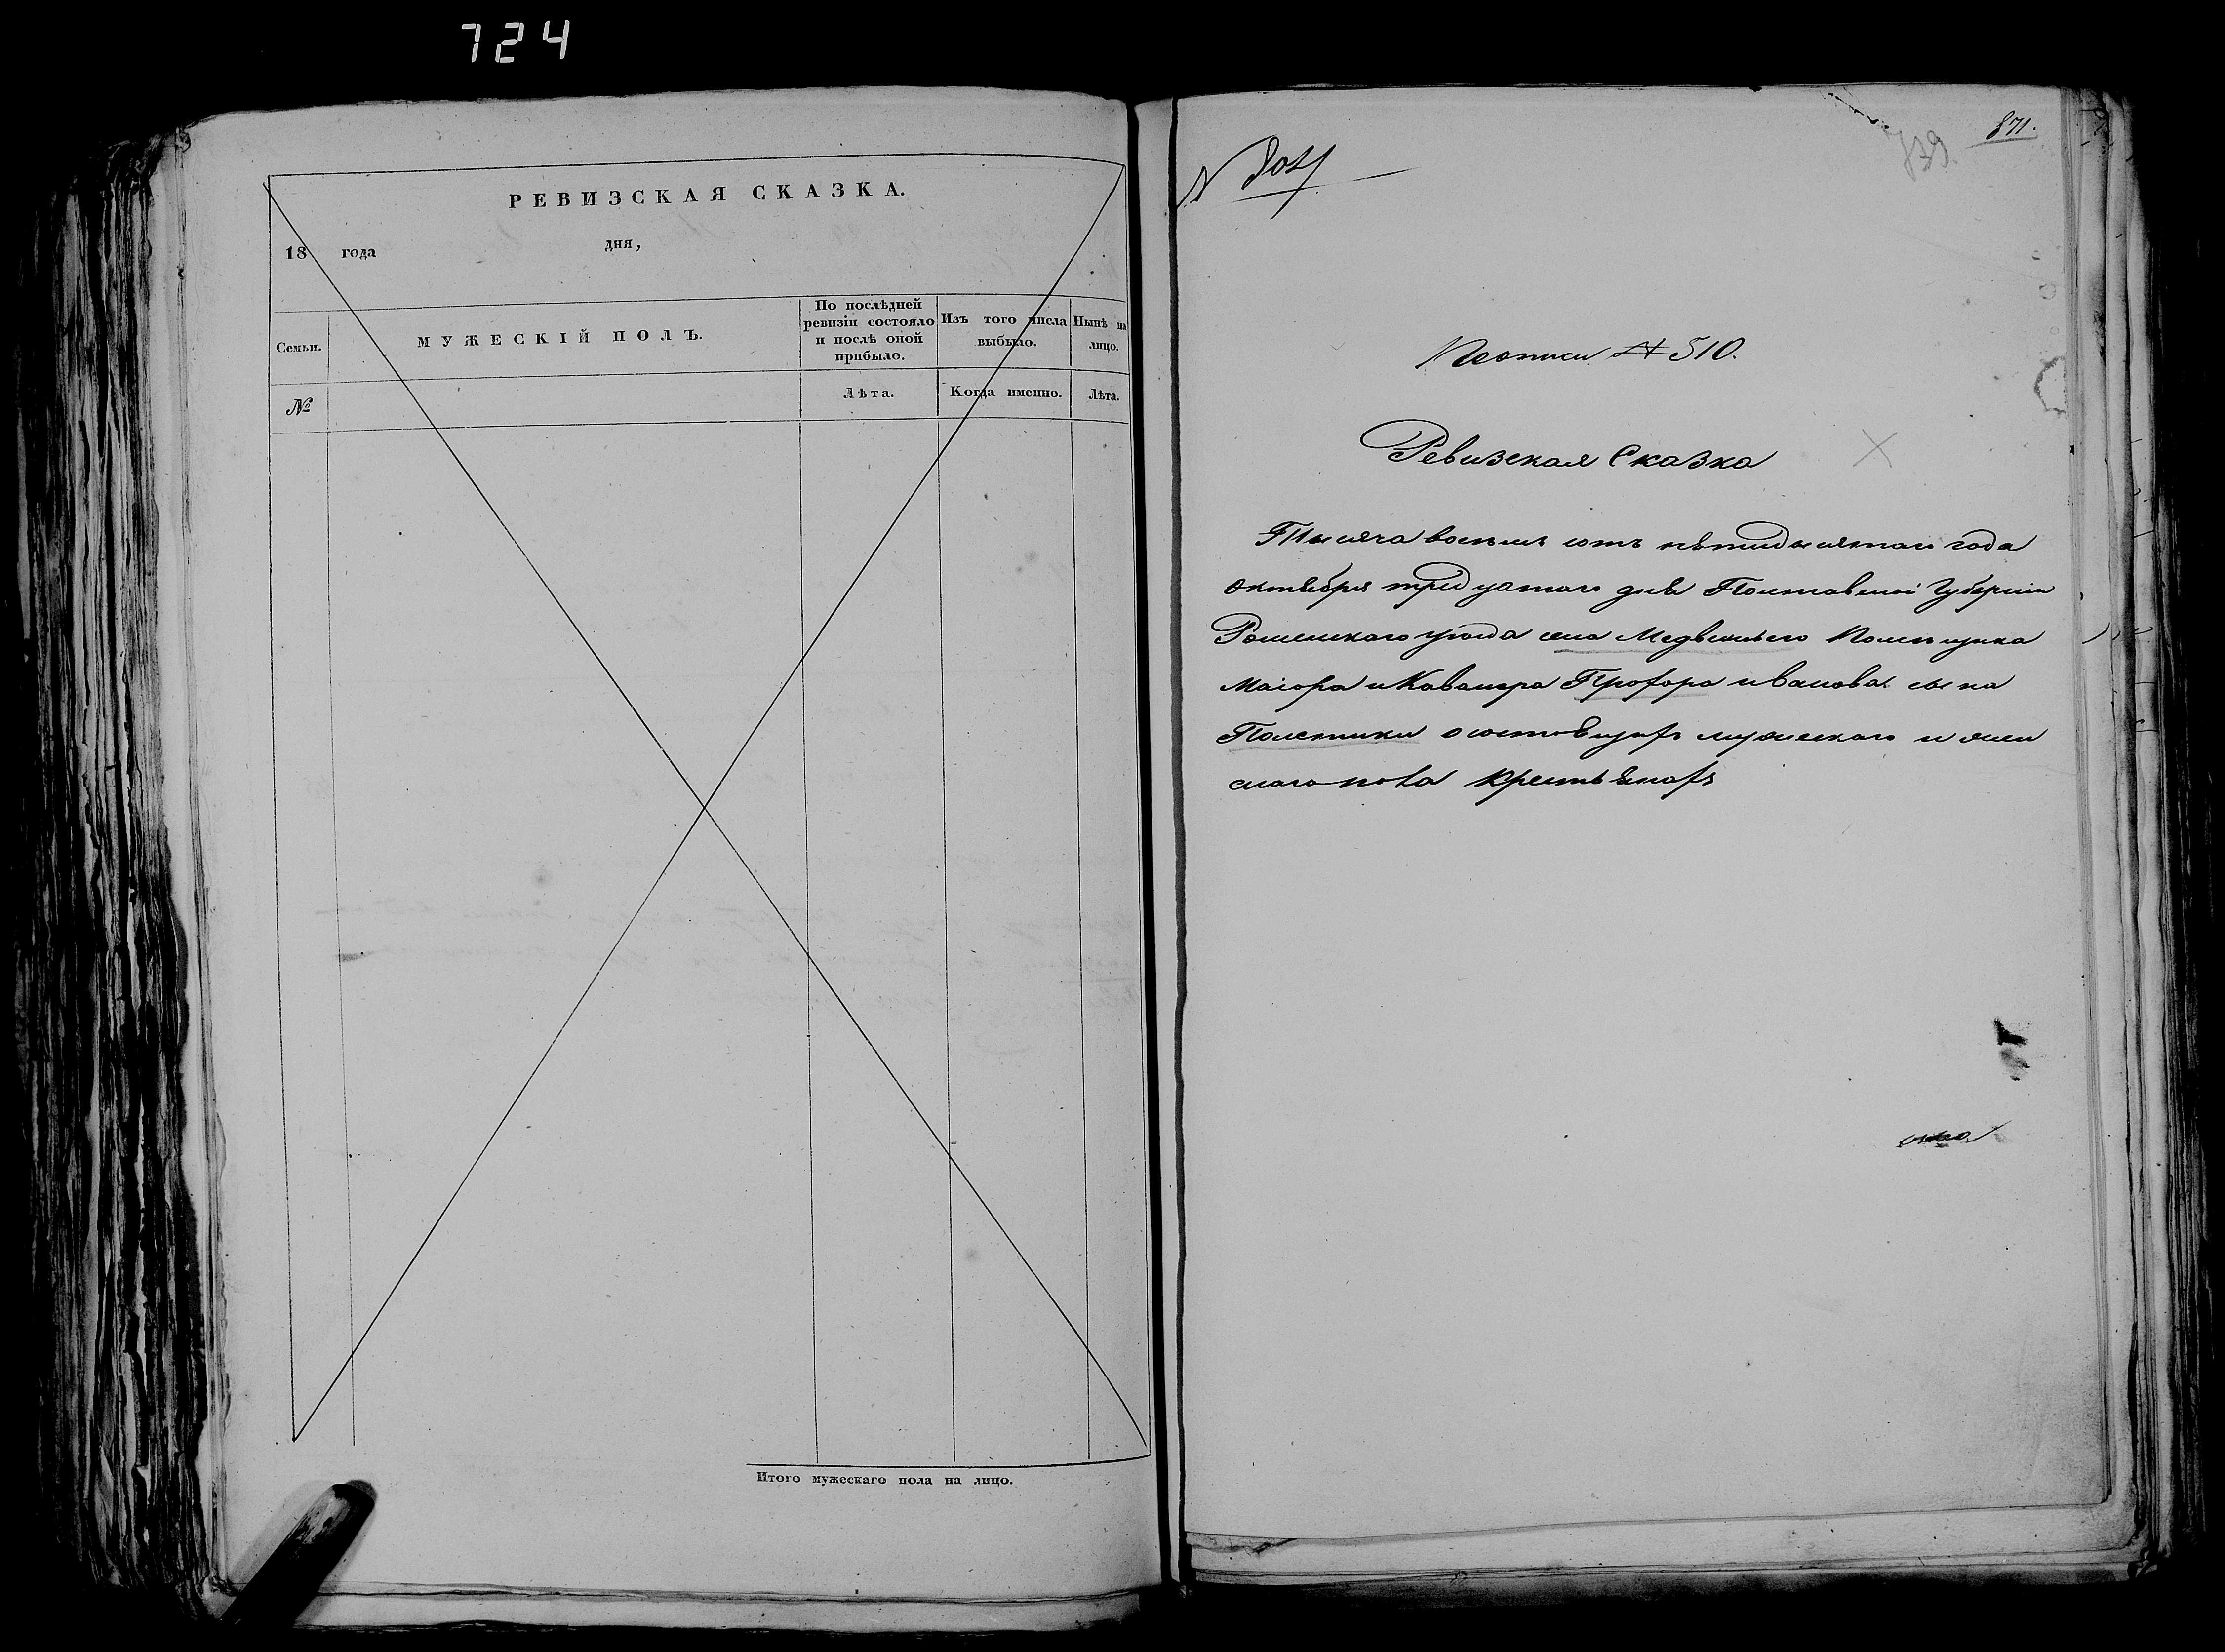 724
РЕВИЗСКАЯ СКАЗКА.
18 года дня,
Семьи. МУЖЕСКІЙ ПОЛЪ. По послѣдней ревизіи состояло и послѣ оной прибыло. Изъ того числа выбыло. Нынѣ на лицо.
№ Лѣта. Когда именно. Лѣта.
Итого мужескаго пола на лицо.
871.
739
N
Пописи N 510.
Ревизская Сказка
Тысяча восемь сотъ пятидесятаго года
октября тридцатого дня Полтавской Губерніи
Роменскаго уезда села Медвежьего Помещика
Маіора и Кавалера Профора иванова сына
Полетики о состоящихъ мужескаго и жен
скаго пола крестьянахъ